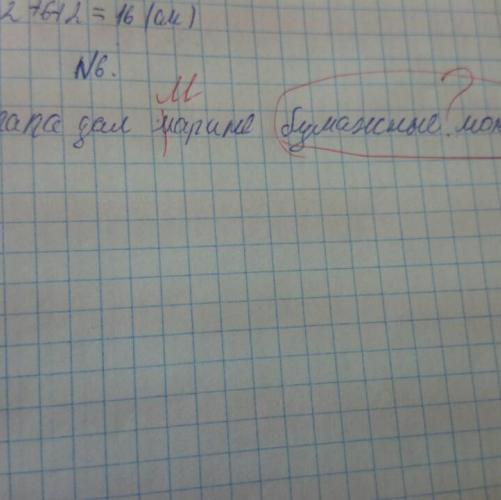 2+6+2=16(см)
N6.
М
папа дал марине бумажные мон
?